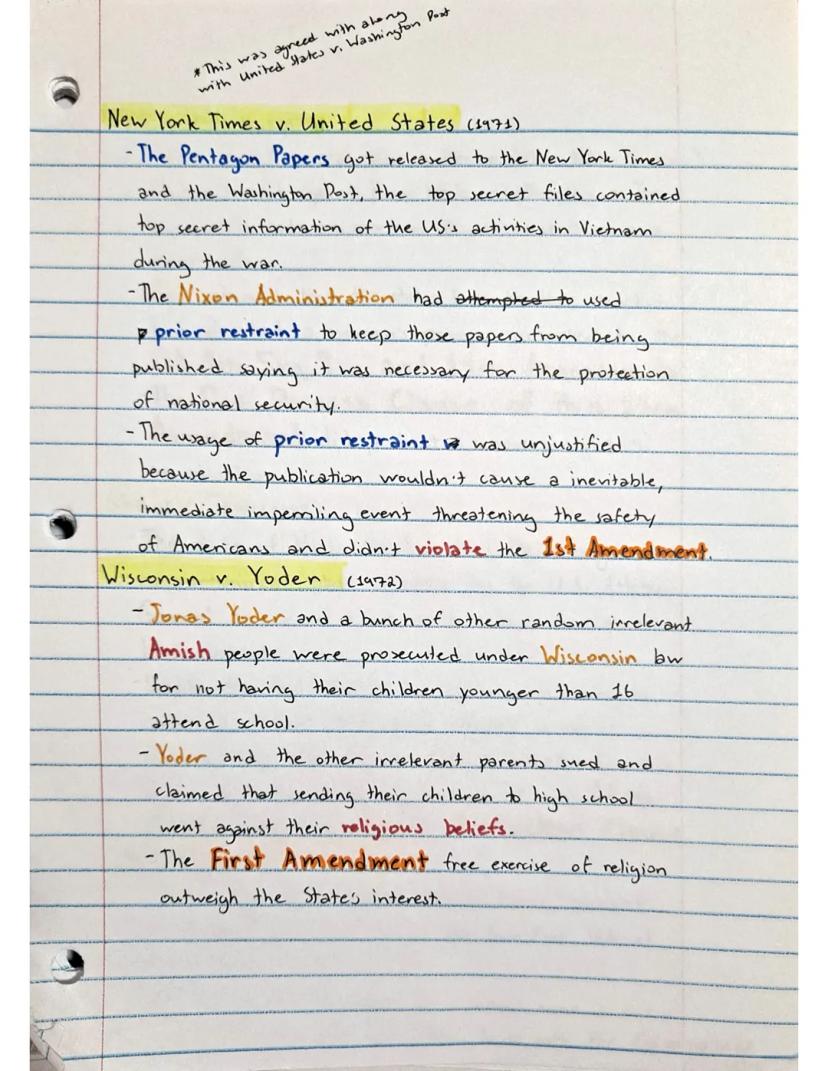 *This was agreed with along
with United States v. Washington Post
New York Times v. United States (1971)
- The Pentagon Papers got released to the New York Times
and the Washington Post, the top secret files contained
top secret information of the US's activities in Vietnam
during the war.
- The Nixon Administration had attempted to used
prior restraint to keep those papers from being
published saying it was necessary for the protection
of national security.
- The usage of prior restraint was unjustified
because the publication wouldn't cause a inevitable,
immediate imperriling event threatening the safety
of Americans and didn't violate the 1st Amendment.
Wisconsin v. Yoder (1972)
- Jonas Yoder and a bunch of other random irrelevant
Amish people were prosecuted under Wisconsin law
for not having their children younger than 16
attend school.
- Yoder and the other irrelevant parents sued and
claimed that sending their children to high school
went against their religious beliefs.
- The First Amendment free exercise of religion
outweigh the State's interest.